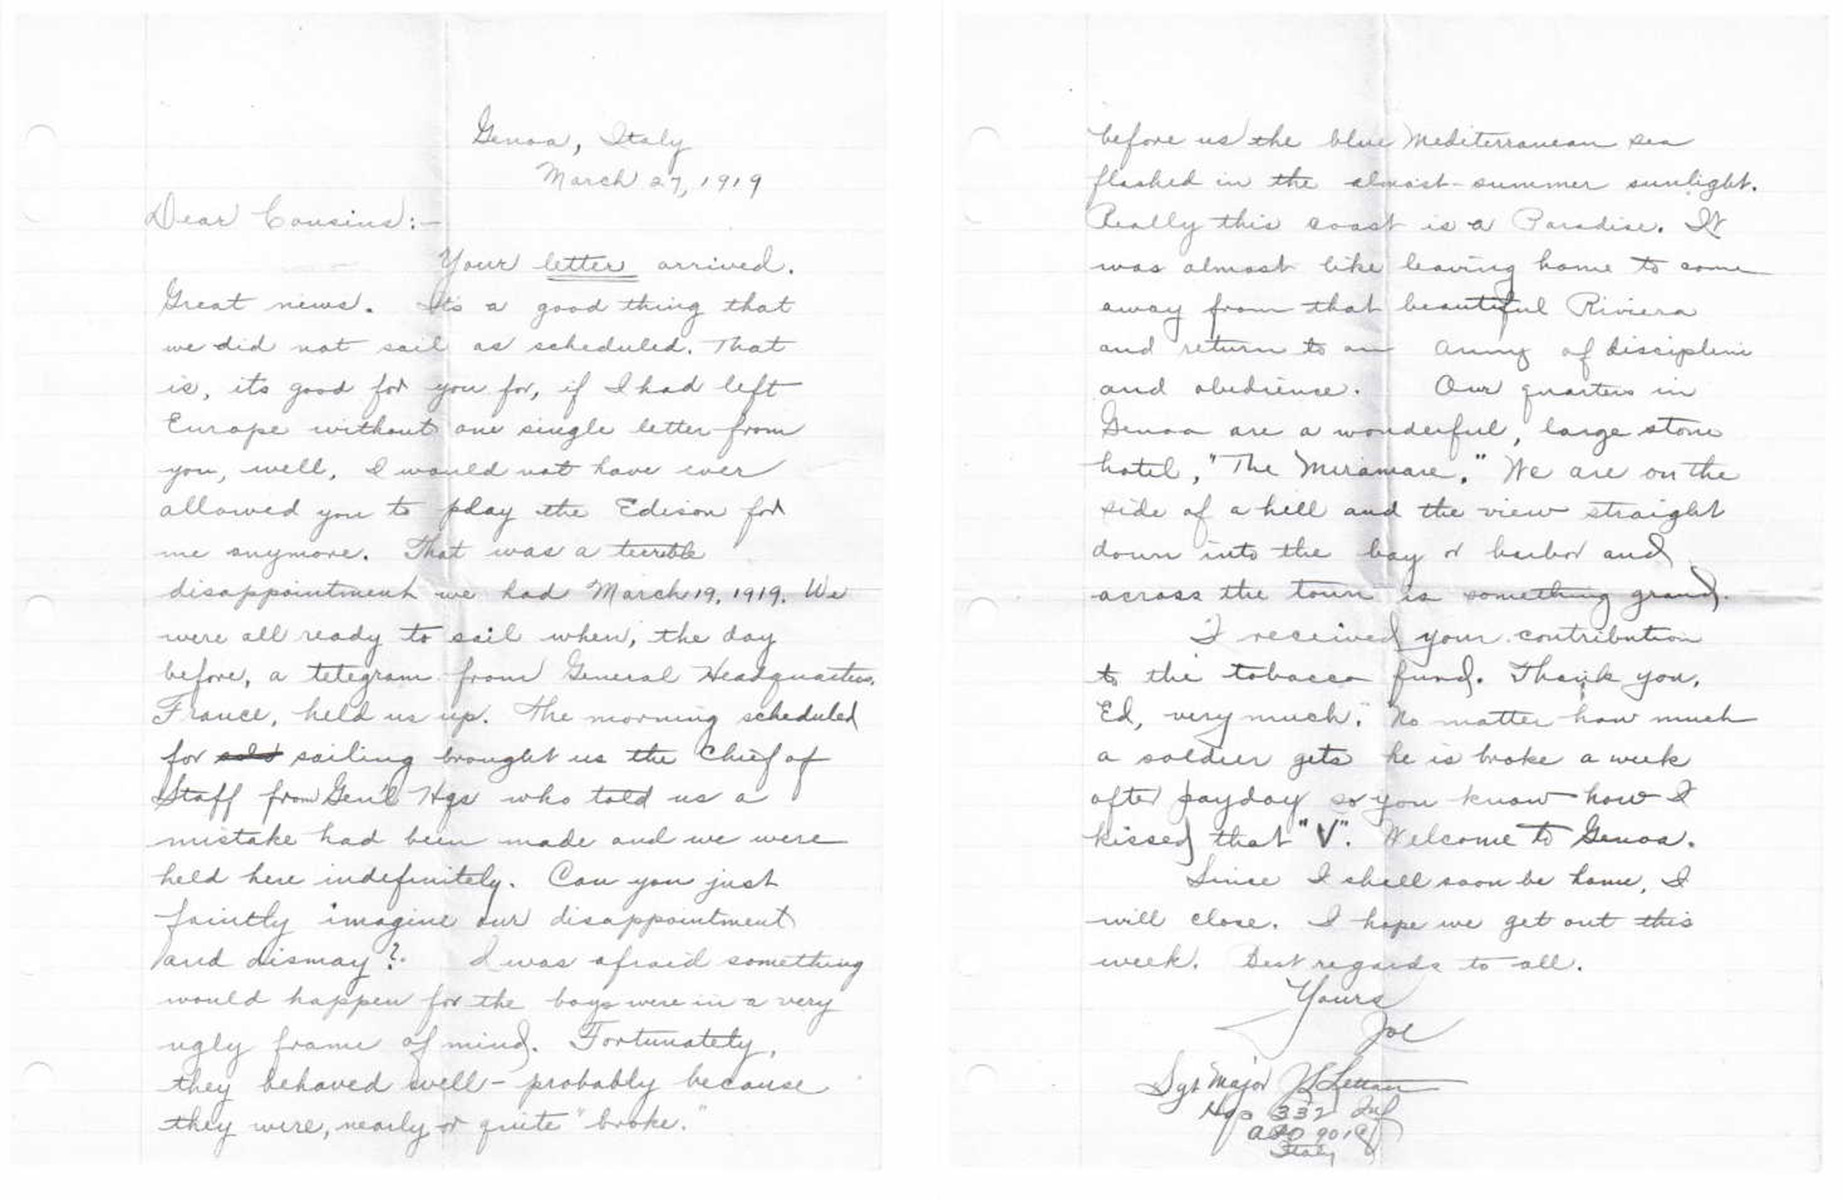 Genoa, Italy
March 27, 1919
Dear Cousins:-
Your letter arrived.
Great news. Its a good thing that
we did not sail as scheduled. That
is, its good for you for, if I had left
Europe without one single letter from
you, well, I would not have ever
allowed you to play the Edison for
me anymore. That was a terrible
disappointment we had March 19, 1919. We
were all ready to sail when, the day
before, a telegram from General Headquarters,
France, held us up. The morning scheduled
for sailing brought us the Chief of
Staff from Gen'l Hqs who told us a
mistake had been made and we were
held here indefinitely. Can you just
faintly imagine our disappointment
and dismay? I was afraid something
would happen for the boys were in a very
ugly frame of mind. Fortunately,
they behaved well - probably because
they were, nearly or quite "broke."
before us the blue Mediterranean sea
flashed in the almost-summer sunlight.
Really this coast is a Paradise. It
was almost like leaving home to come
away from that beautiful Riviera
and return to an army of discipline
and obedience. Our quarters in
Genoa are a wonderful, large stone
hotel, "The Miramare." We are on the
side of a hill and the view straight
down into the bay or harbor and
across the town is something grand.
I received your contribution
to the tobacco fund. Thank you,
Ed, very much. No matter how much
a soldier gets he is broke a week
after payday so you know how I
kissed that "V". Welcome to Genoa.
Since I shall soon be home, I
will close. I hope we get out this
week. Best regards to all.
Yours
Joe
Sgt Major
Hqs 332 Inf
APO 901
Italy